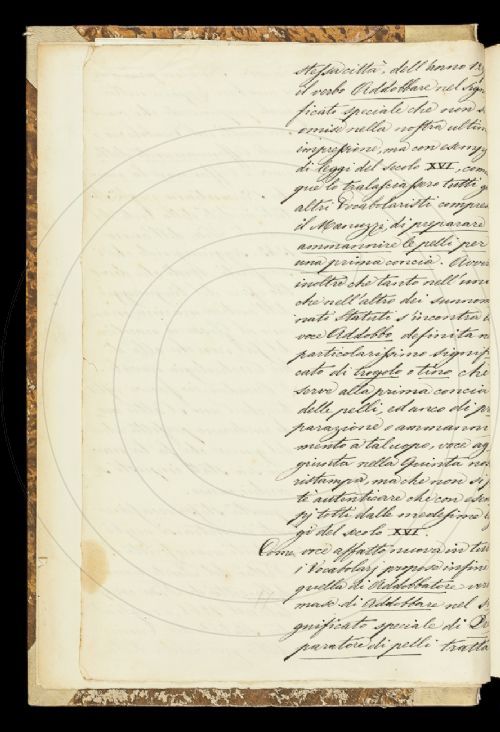 stessa città, dell'anno 13
il verbo Addobbare nel sign
ficato speciale che non s
omise nella nostra ultim
impressione, ma con esemp
di Leggi del secolo XVI, com
que lo tralasciassero tutti g
altri Vocabolaristi compres
il Manuzzi, di preparare
ammannire le pelli per
una prima concia. Avver
inoltre che tanto nell'uno
che nell'altro dei summen
nati Statuti s'incontra l
voce Addobbo, definita n
particolarissimo signifi
cato di trogolo o tino che
serve alla prima concia
delle pelli, ed anco di pr
parazione o ammanni
mento a tal uopo, voce ag
giunta nella Quinta nos
ristampa, ma che non si p
tè autenticare che con esem
pj tolti dalle medesime l
gi del secolo XVI.
Come voce affatto nuova in tut
i Vocabolarj propose infine
quella di Addobbatore ver
masc di Addobbare nel s
gnificato speciale di Pre
paratore di pelli tratta